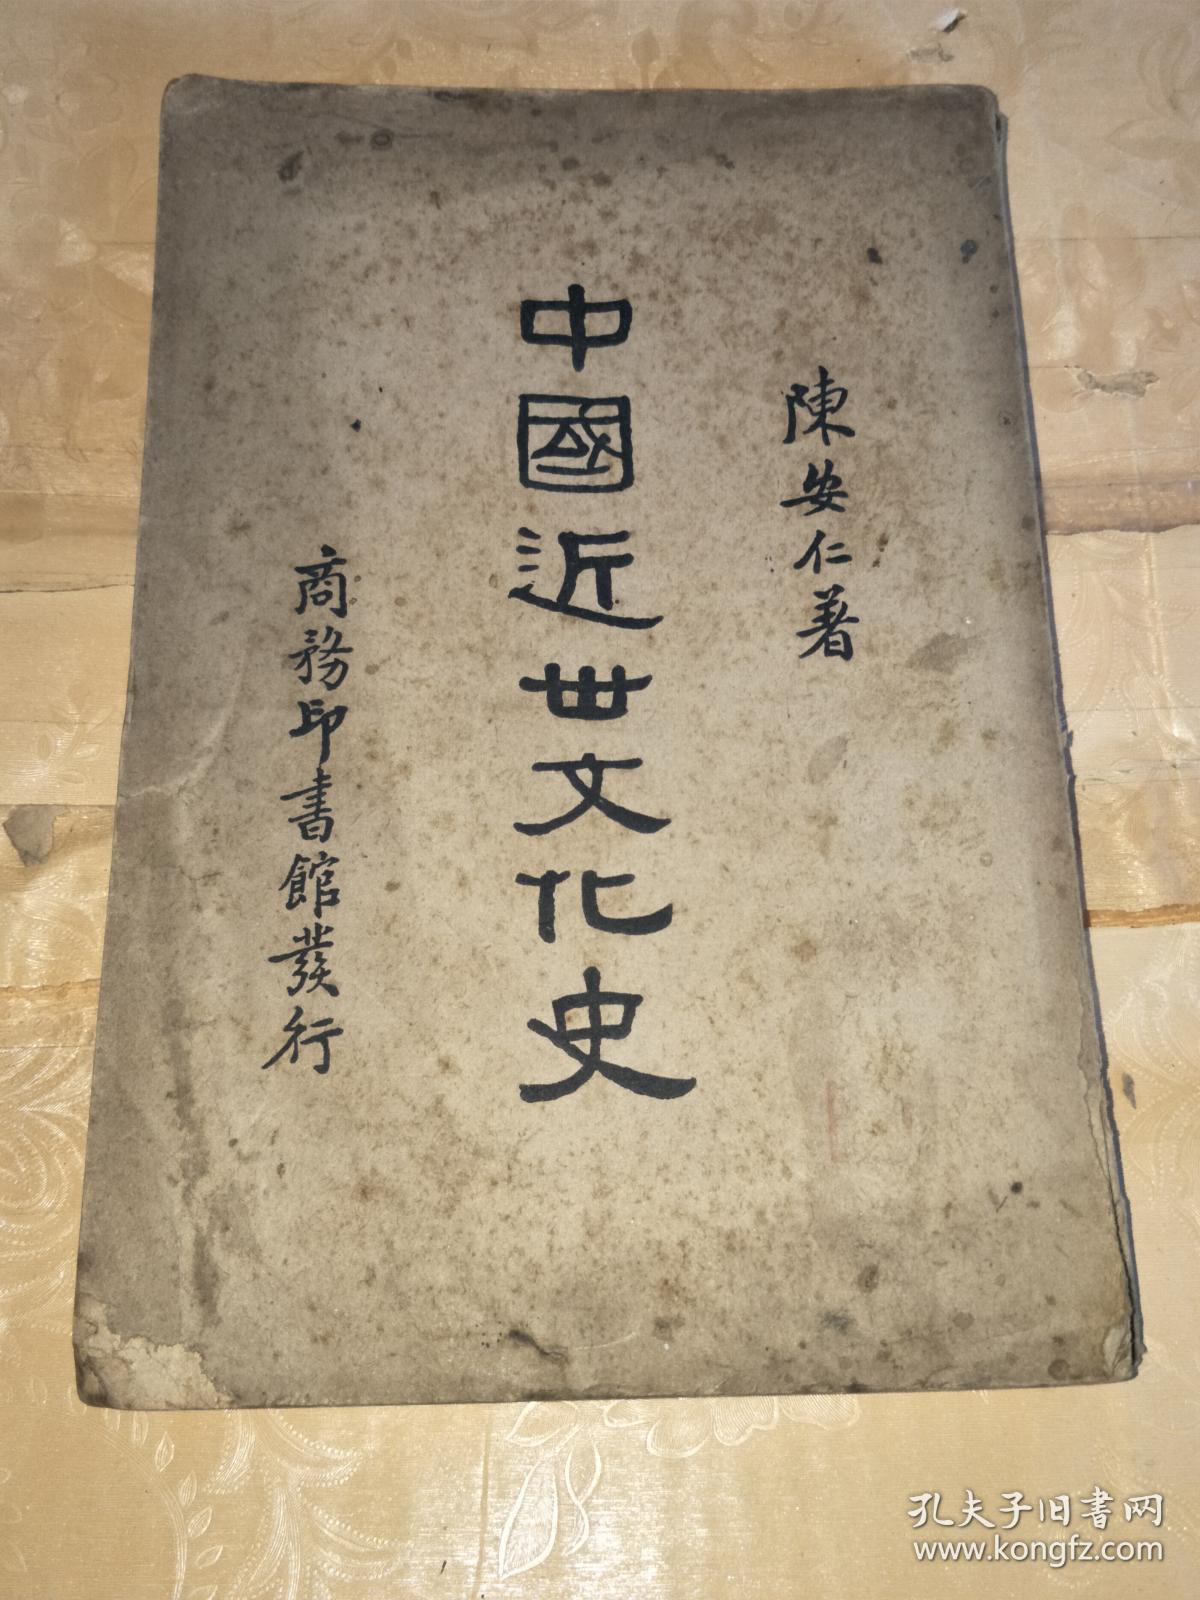 陳安仁著
中國近世文化史
商務印書館發行
孔夫子旧书网
www.kongfz.com